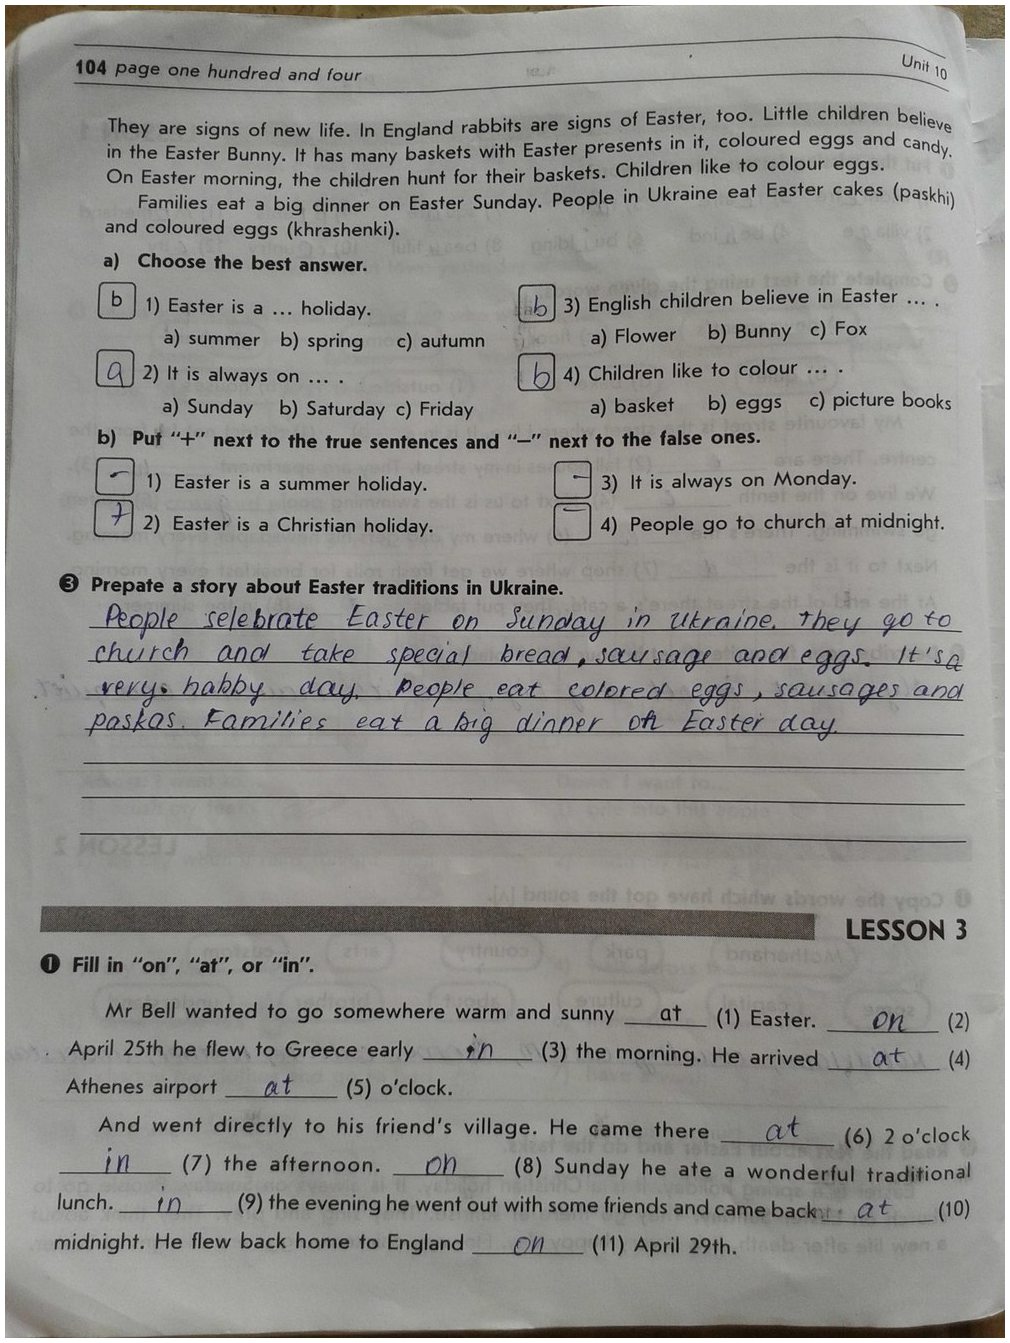 104 page one hundred and four
Unit 10
They are signs of new life. In England rabbits are signs of Easter, too. Little children believe
in the Easter Bunny. It has many baskets with Easter presents in it, coloured eggs and candy.
On Easter morning, the children hunt for their baskets. Children like to colour eggs.
Families eat a big dinner on Easter Sunday. People in Ukraine eat Easter cakes (paskhi)
and coloured eggs (khrashenki).
a) Choose the best answer.
b 1) Easter is a ... holiday.
a) summer b) spring c) autumn
a 2) It is always on ... .
a) Sunday b) Saturday c) Friday
b 3) English children believe in Easter ... .
a) Flower b) Bunny c) Fox
b 4) Children like to colour ... .
a) basket b) eggs c) picture books
b) Put "+" next to the true sentences and "–" next to the false ones.
- 1) Easter is a summer holiday.
+ 2) Easter is a Christian holiday.
- 3) It is always on Monday.
- 4) People go to church at midnight.
3 Prepate a story about Easter traditions in Ukraine.
People selebrate Easter on Sunday in Ukraine. They go to
church and take special bread, sausage and eggs. It's a
very habby day. People eat colored eggs, sausages and
paskas. Families eat a big dinner on Easter day.
LESSON 3
1 Fill in "on", "at", or "in".
Mr Bell wanted to go somewhere warm and sunny at (1) Easter. on (2)
April 25th he flew to Greece early in (3) the morning. He arrived at (4)
Athenes airport at (5) o'clock.
And went directly to his friend's village. He came there at (6) 2 o'clock
in (7) the afternoon. on (8) Sunday he ate a wonderful traditional
lunch. in (9) the evening he went out with some friends and came back at (10)
midnight. He flew back home to England on (11) April 29th.